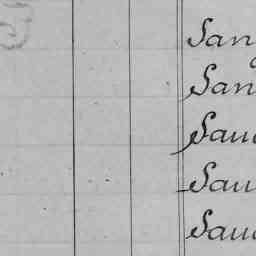 San
San
Sau
Sau
Sau